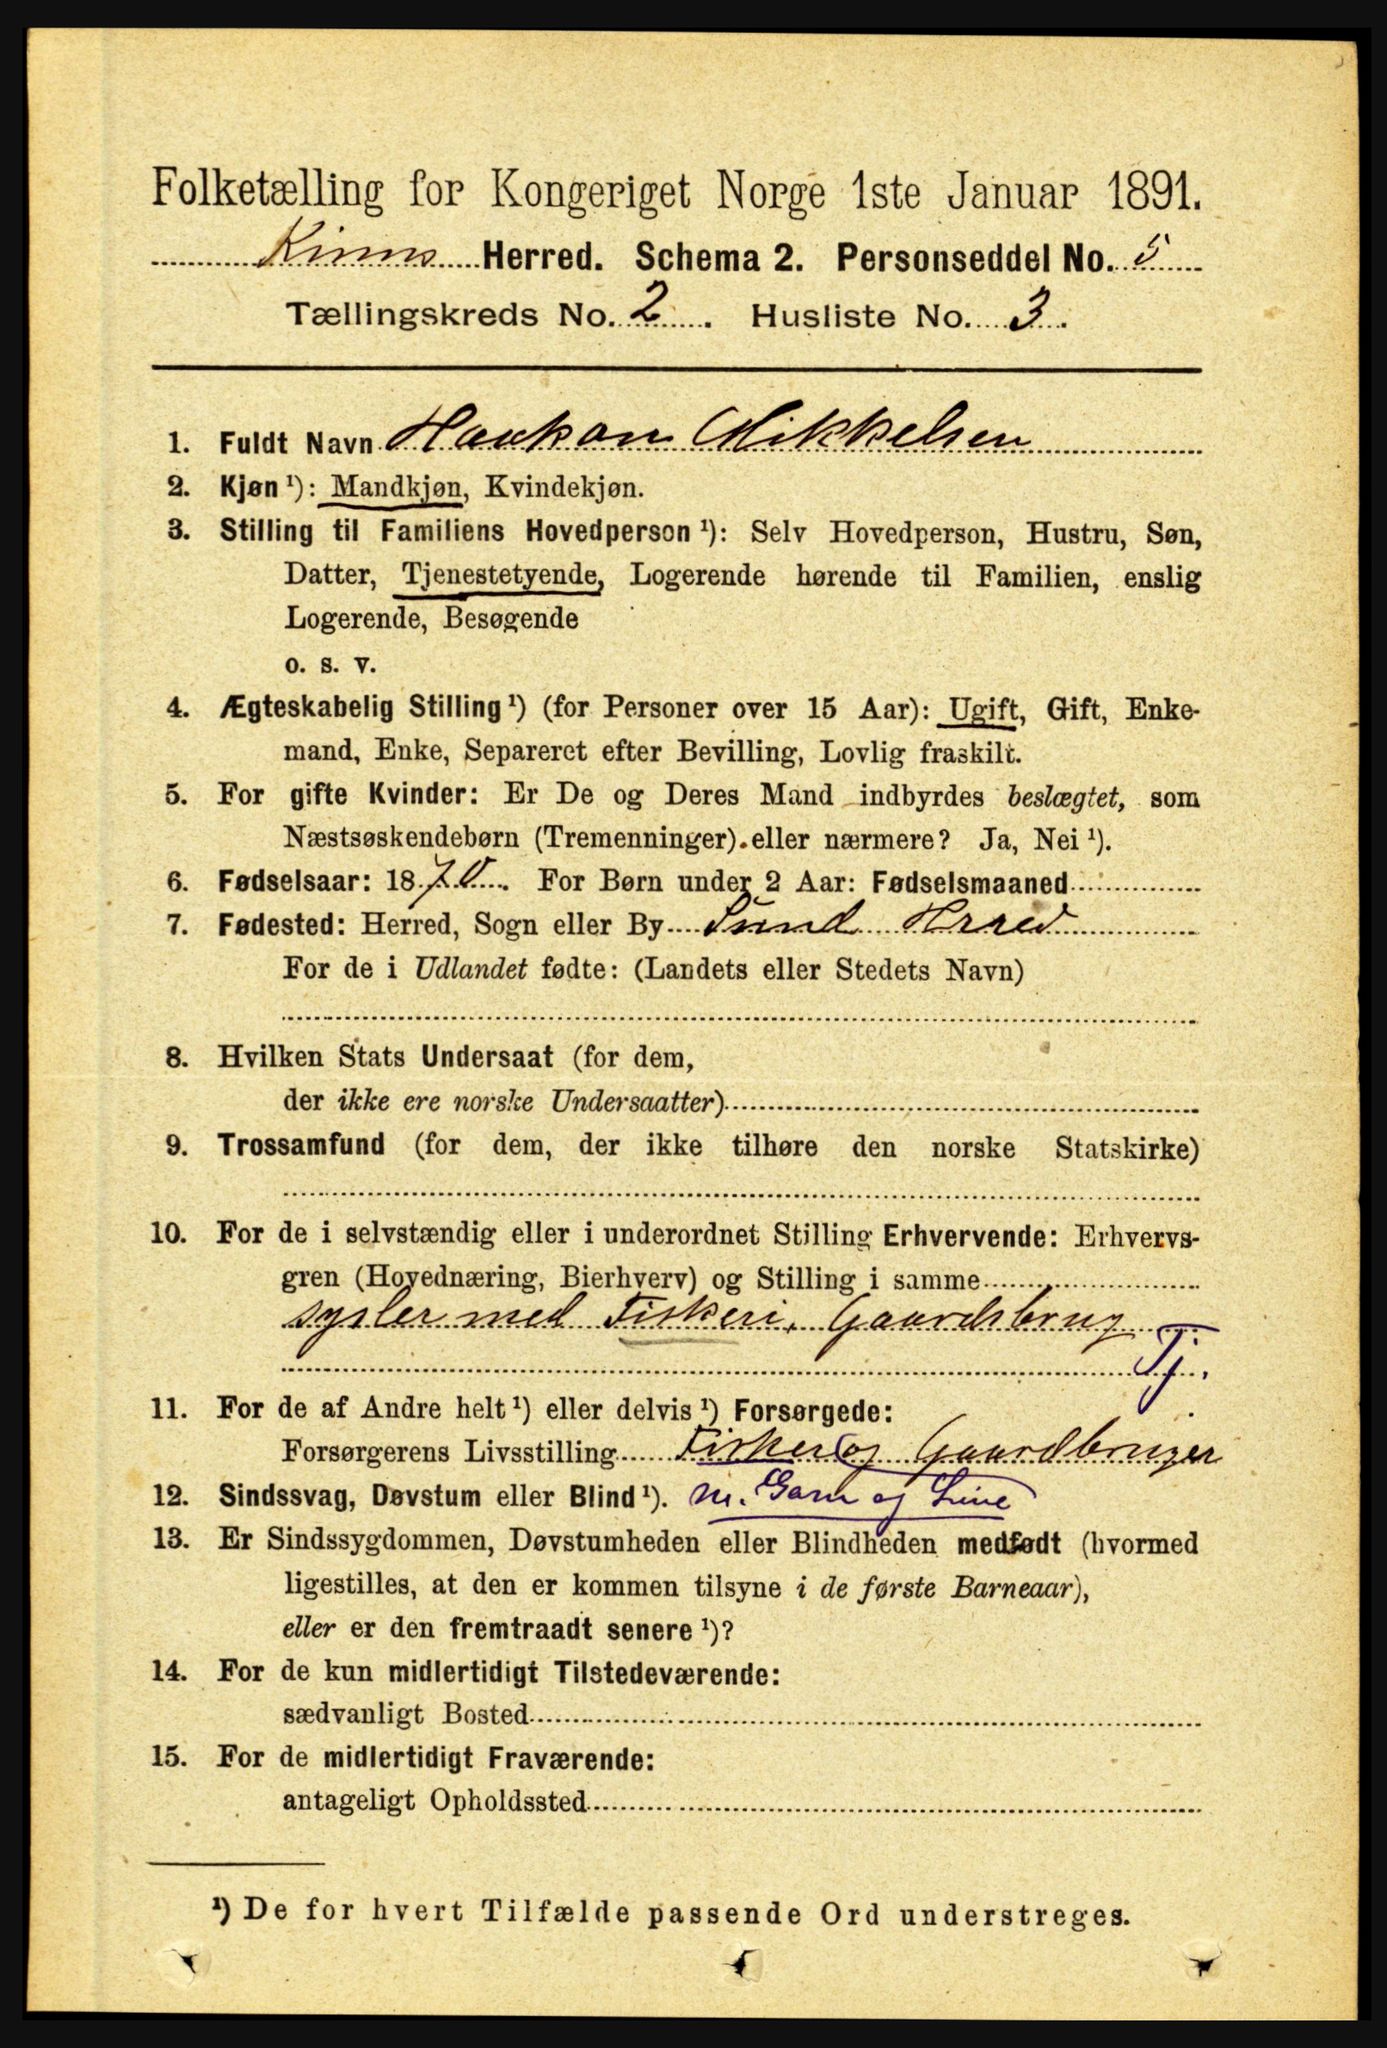 Folketælling for Kongeriget Norge 1ste Januar 1891.
Kinns Herred. Schema 2. Personseddel No. 5
Tællingskreds No. 2. Husliste No. 3.
1. Fuldt Navn Haakon Mikkelsen
2. Kjøn ¹): Mandkjøn, Kvindekjøn.
3. Stilling til Familiens Hovedperson ¹): Selv Hovedperson, Hustru, Søn,
Datter, Tjenestetyende, Logerende hørende til Familien, enslig
Logerende, Besøgende
o. s. v.
4. Ægteskabelig Stilling ¹) (for Personer over 15 Aar): Ugift, Gift, Enke-
mand, Enke, Separeret efter Bevilling, Lovlig fraskilt.
5. For gifte Kvinder: Er De og Deres Mand indbyrdes beslægtet, som
Næstsøskendebørn (Tremenninger) eller nærmere? Ja, Nei ¹).
6. Fødselsaar: 1870. For Børn under 2 Aar: Fødselsmaaned
7. Fødested: Herred, Sogn eller By Sund Herred
For de i Udlandet fødte: (Landets eller Stedets Navn)
8. Hvilken Stats Undersaat (for dem,
der ikke ere norske Undersaatter)
9. Trossamfund (for dem, der ikke tilhøre den norske Statskirke)
10. For de i selvstændig eller i underordnet Stilling Erhvervende: Erhvervs-
gren (Hovednæring, Bierhverv) og Stilling i samme
sysler med Fiskeri, Gaardsbrug
Tj.
11. For de af Andre helt ¹) eller delvis ¹) Forsørgede:
Forsørgerens Livsstilling Fisker og Gaardbruger
12. Sindssvag, Døvstum eller Blind ¹). m. Garn og Line
13. Er Sindssygdommen, Døvstumheden eller Blindheden medfødt (hvormed
ligestilles, at den er kommen tilsyne i de første Barneaar),
eller er den fremtraadt senere ¹)?
14. For de kun midlertidigt Tilstedeværende:
sædvanligt Bosted
15. For de midlertidigt Fraværende:
antageligt Opholdssted
¹) De for hvert Tilfælde passende Ord understreges.